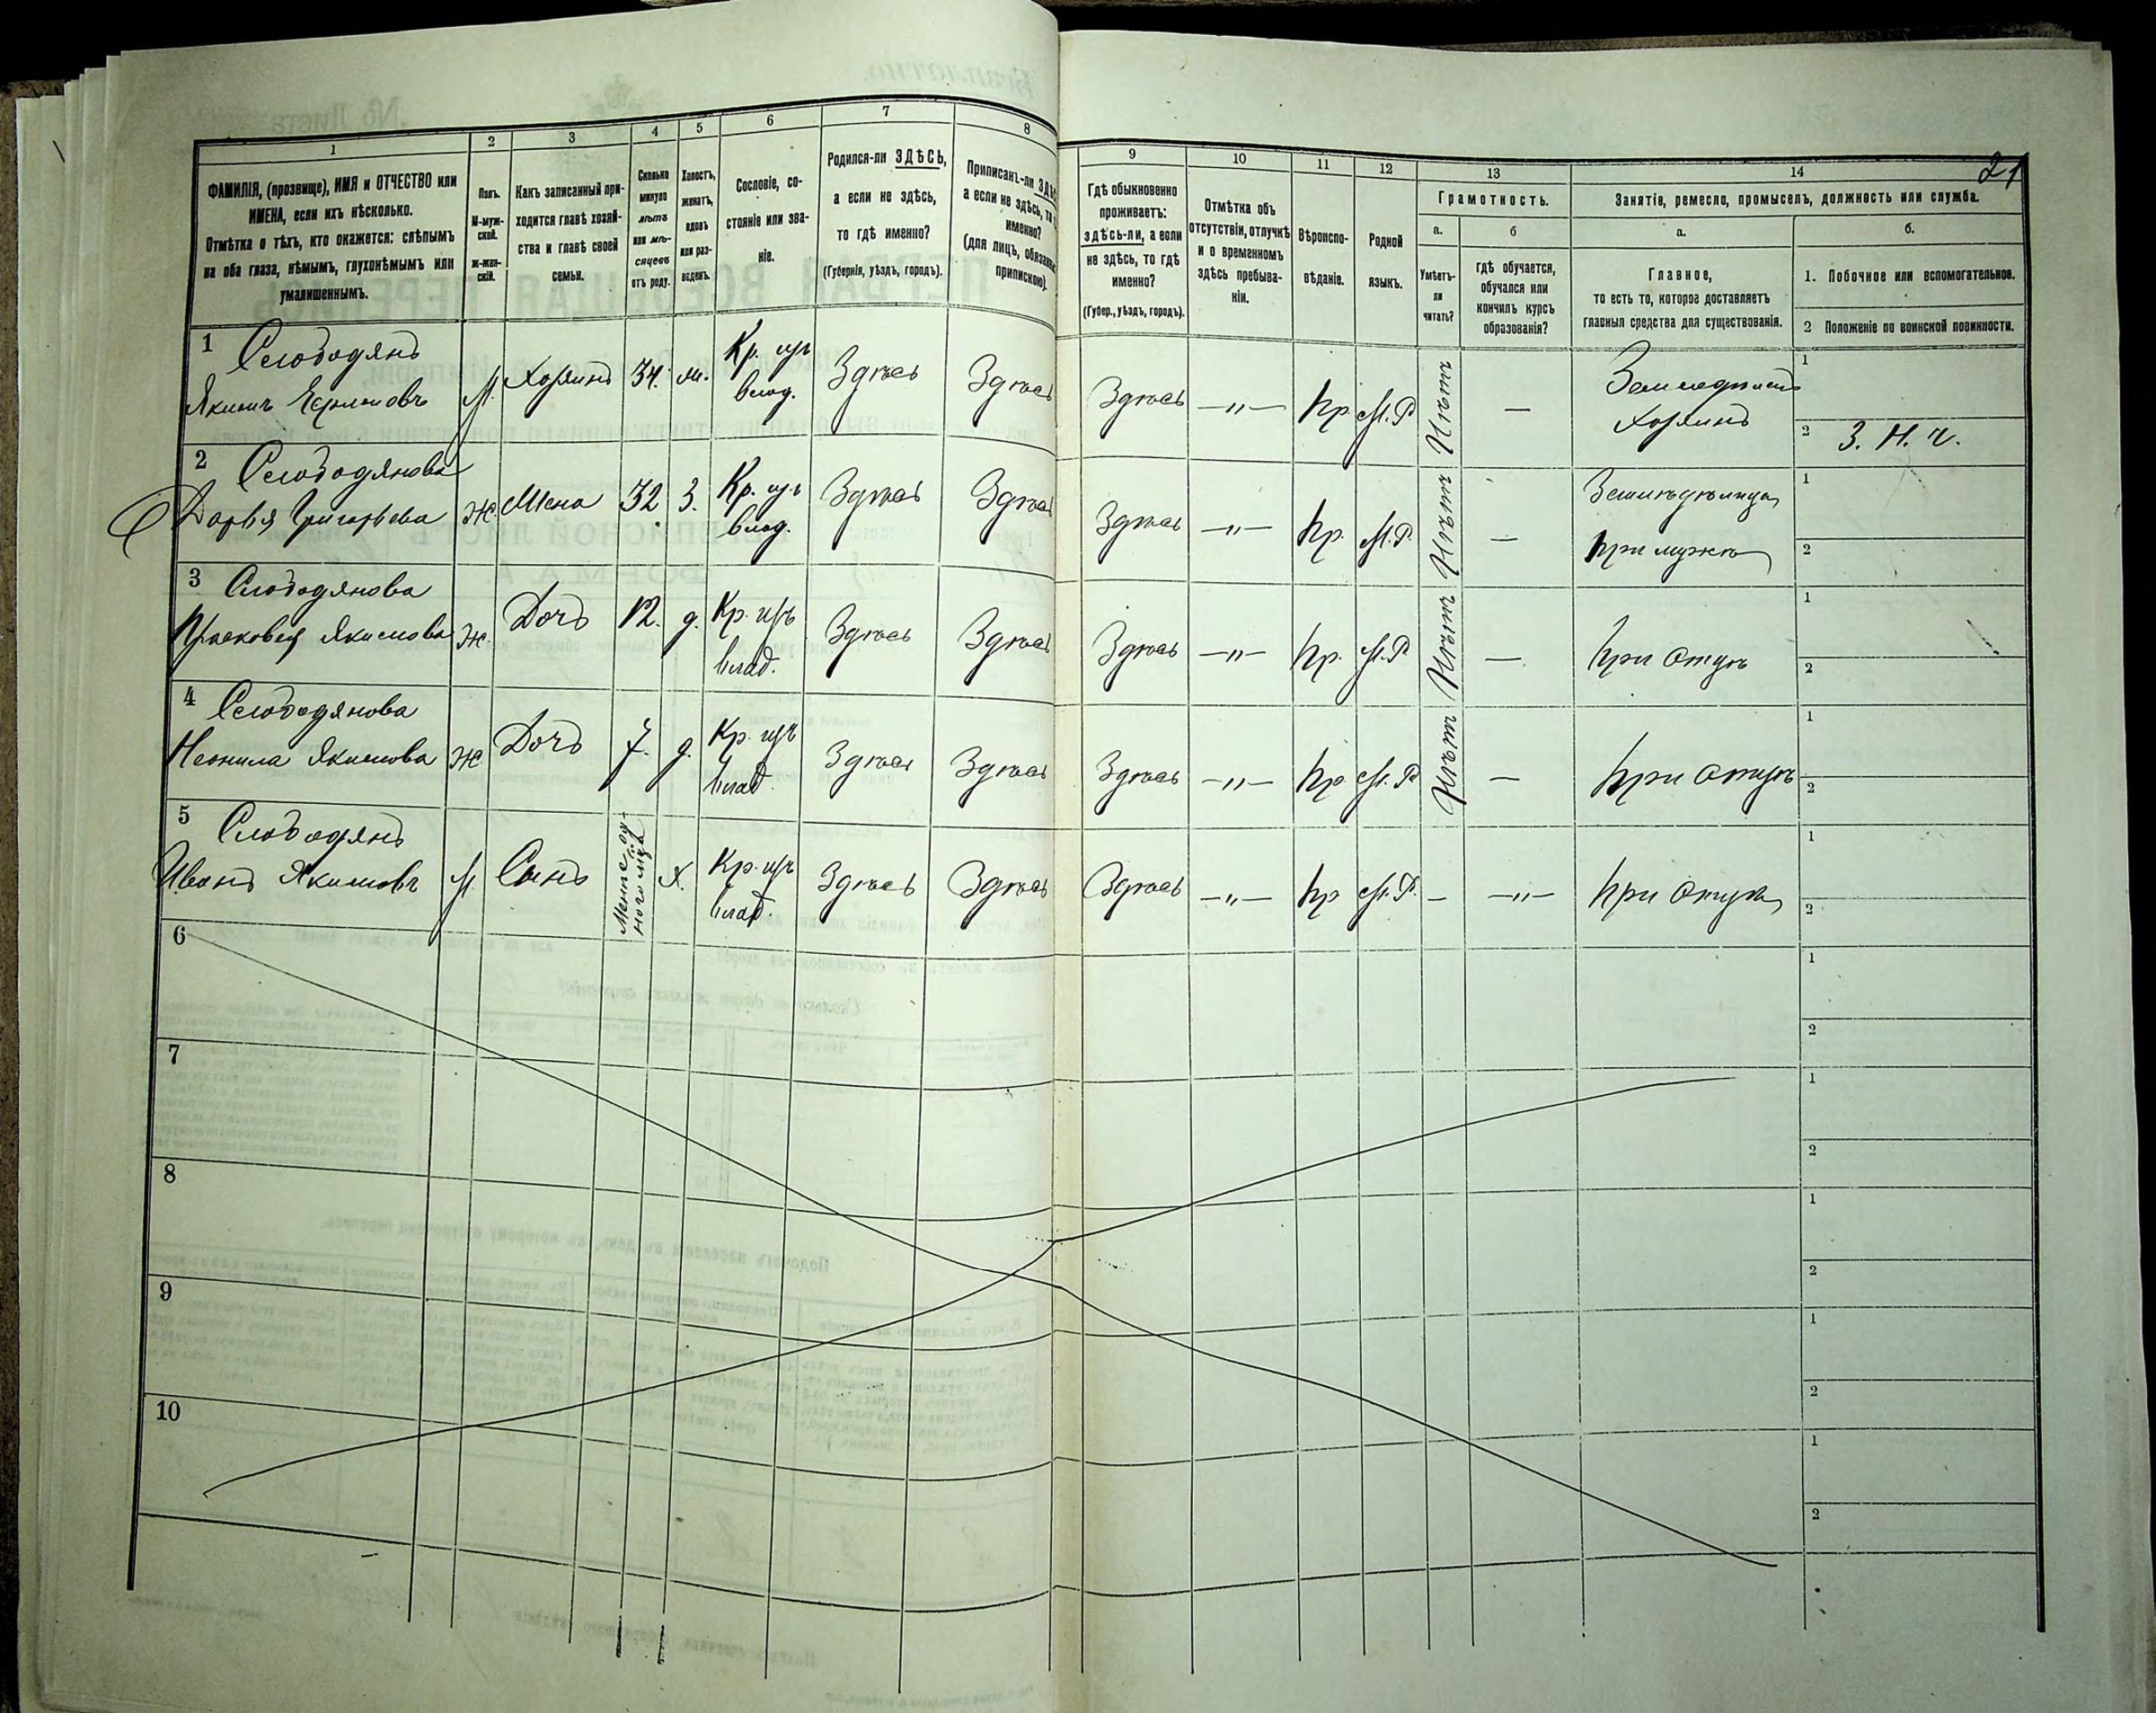 21
1
2
3
4
5
6
7
8
9
10
11
12
13
14
ФАМИЛІЯ, (прозвище), ИМЯ и ОТЧЕСТВО или
ИМЕНА, если ихъ нѣсколько.
Отмѣтка о тѣхъ, кто окажется: слѣпымъ
на оба глаза, нѣмымъ, глухонѣмымъ или
умалишеннымъ.
Полъ.
М-муж-
ской.
Ж-жен-
скій.
Какъ записанный при-
ходится главѣ хозяй-
ства и главѣ своей
семьи.
Сколько
минуло
лѣтъ
или мѣ-
сяцевъ
отъ роду.
Холостъ,
женатъ,
вдовъ
или раз-
веденъ.
Сословіе, со-
стояніе или зва-
ніе.
Родился-ли ЗДѢСЬ,
а если не здѣсь,
то гдѣ именно?
(Губернія, уѣздъ, городъ).
Приписанъ-ли
а если не здѣсь, то
именно?
(для лицъ,
припискою).
Гдѣ обыкновенно
проживаетъ:
здѣсь-ли, а если
не здѣсь, то гдѣ
именно?
(Губер., уѣздъ, городъ).
Отмѣтка объ
отсутствіи, отлучкѣ
и о временномъ
здѣсь пребыва-
ніи.
Вѣроиспо-
вѣданіе.
Родной
языкъ.
Грамотность.
а.
б
Умѣетъ-
ли
читать?
гдѣ обучается,
обучался или
кончилъ курсъ
образованія?
Занятіе, ремесло, промыселъ, должность или служба.
а.
б.
Главное,
то есть то, которое доставляетъ
главныя средства для существованія.
1. Побочное или вспомогательное.
2 Положеніе по воинской повинности.
1 Слободянъ
Якимъ М. Хозяинъ 34. Кр. изъ влад. Здѣсь Здѣсь Здѣсь —"— Пр. М.Р. Нѣтъ — Хозяинъ
1
2 З. Н. Ч.
2 Слободянова
Дарья Григорьева Ж. Жена 32 З. Кр. изъ влад. Здѣсь Здѣсь Здѣсь —"— Пр. М.Р. Нѣтъ — Земледѣлица при мужѣ
1
2
3 Слободянова
Якимова Ж. Дочь 12. д. Кр. изъ влад. Здѣсь Здѣсь Здѣсь —"— Пр. М.Р. Нѣтъ — при отцѣ
1
2
4 Слободянова
Неонила Якимова Ж Дочь 7. д. Кр. изъ влад. Здѣсь Здѣсь Здѣсь —"— Пр М.Р Нѣтъ — при отцѣ
1
2
5 Слободянъ
Иванъ Якимовъ М. Сынъ Менѣе од-
ного м-ца х. Кр. изъ влад. Здѣсь Здѣсь Здѣсь —"— Пр М.Р. – —"— при отцѣ
1
2
6
1
2
7
1
2
8
1
2
9
1
2
10
1
2